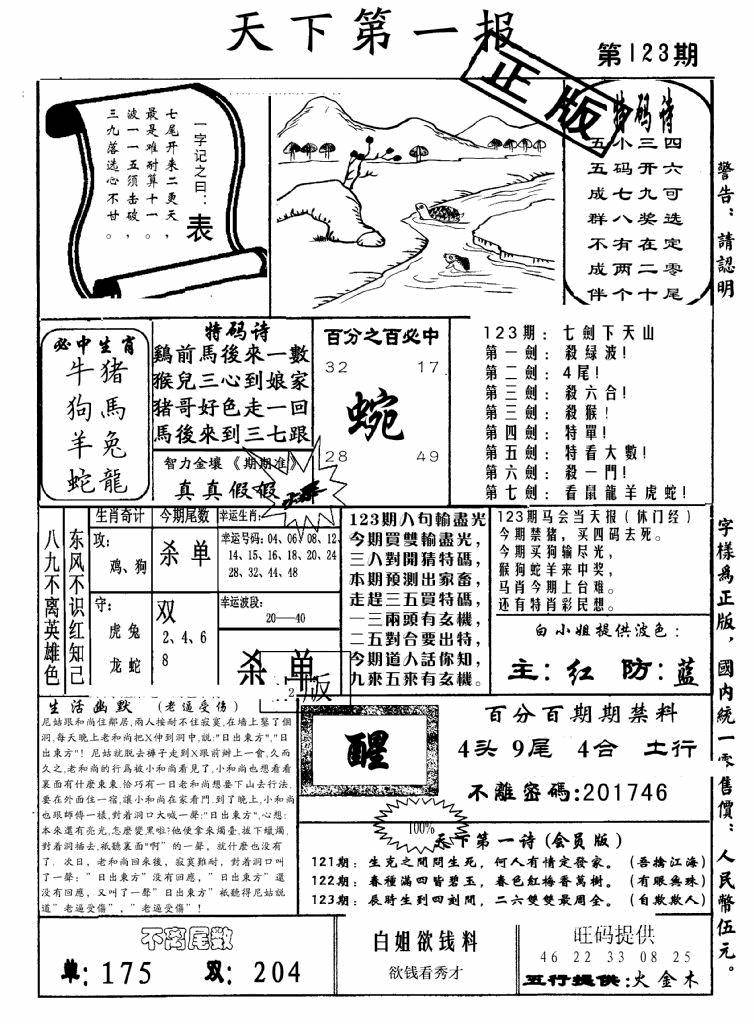 天下第一报
第123期
正版
一字记之曰：表
七尾开来二更天，
最是难耐算十一。
波一一五须击破，
三九落选心不甘。
特码诗
五小三四
五码开六
成七九可
群八奖选
不有在定
成两二零
伴个十尾
警告：請認明
字樣爲正版，國内統一零售價：人民幣伍元。
必中生肖
牛猪
狗馬
羊兔
蛇龍
特码诗
鷄前馬後來一數
猴兒三心到娘家
猪哥好色走一回
馬後來到三七跟
智力金壤《期期准》
真真假假
百分之百必中
32 17
蜿
28 49
123期：七劍下天山
第一劍：殺緑波！
第二劍：4尾！
第三劍：殺六合！
第三劍：殺猴！
第四劍：特單！
第五劍：特看大數！
第六劍：殺一門！
第七劍：看鼠龍羊虎蛇！
八九不离英雄色
东风不识红知己
生肖奇计
攻：
鸡、狗
守：
虎兔
龙蛇
今期尾数
杀单
双
2、4、6
8
幸运生肖：
幸运号码：04、06、08、12、
14、15、16、18、20、24
28、32、44、48
幸运波段：
20—40
杀单
版
123期八句輸盡光
今期買雙輸盡光，
三八對開猜特碼，
本期預測出家畜，
走趕三五買特碼，
一三兩頭有玄機，
二五對合要出特，
今期道人話你知，
九來五來有玄機。
123期马会当天报（休门经）
今期禁猪，买四码去死。
今期买狗输尽光，
猴狗蛇羊来中奖，
马肖今期上台难。
还有特肖彩民想。
白小姐提供波色：
主：红 防：蓝
生活幽默（老逼受伤）
尼姑跟和尚住鄰居，兩人按耐不住寂寞，在墻上鑿了個
洞，每天晚上老和尚把X伸到洞中，説："日出東方"，"日
出東方"！尼姑就脱去褲子走到X跟前辦上一會，久而
久之，老和尚的行爲被小和尚看見了，小和尚也想看看
裏面有什麽東東，恰巧有一日老和尚想要下山去行法，
要在外面住一宿，讓小和尚在家看門，到了晚上，小和尚
也跟師傅一樣，對着洞口大喊一聲："日出東方"，心想：
本來還有亮光，怎麽變黑啦？他便拿來燭臺，拔下蠟燭，
對着洞插去，衹聽裏面"啊"的一聲，就什麽也没有
了．次日，老和尚回來後，寂寞難耐，對着洞口叫
了一聲："日出東方"没有回應，"日出東方"還
没有回應，又叫了一聲"日出東方"衹聽得尼姑説
道"老逼受傷"，"老逼受傷"！
醒
百分百期期禁料
4头 9尾 4合 土行
不離密碼：201746
100%
天下第一诗（会员版）
121期：生克之間問生死，何人有情定發家。（吾擒江海）
122期：春種滿四皆碧玉，春色紅梅香萬樹。（有眼無珠）
123期：辰時生到四刻間，二六雙雙最周全。（自欺欺人）
不离尾数
单：175 双：204
白姐欲钱料
欲钱看秀才
旺码提供
46 22 33 08 25
五行提供：火金木